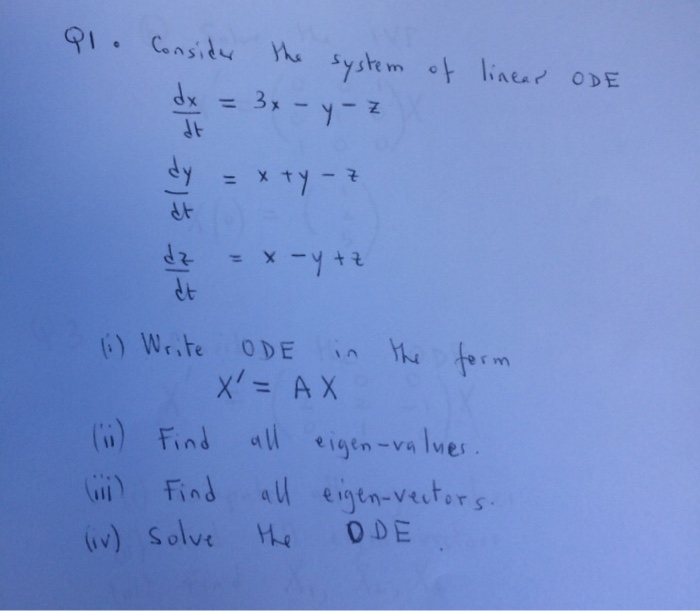 Q1. Consider the system of linear ODE
dx/dt = 3x - y - z
dy/dt = x + y - z
dz/dt = x - y + z
(i) Write ODE in the form
X' = AX
(ii) Find all eigen-values.
(iii) Find all eigen-vectors.
(iv) Solve the ODE.